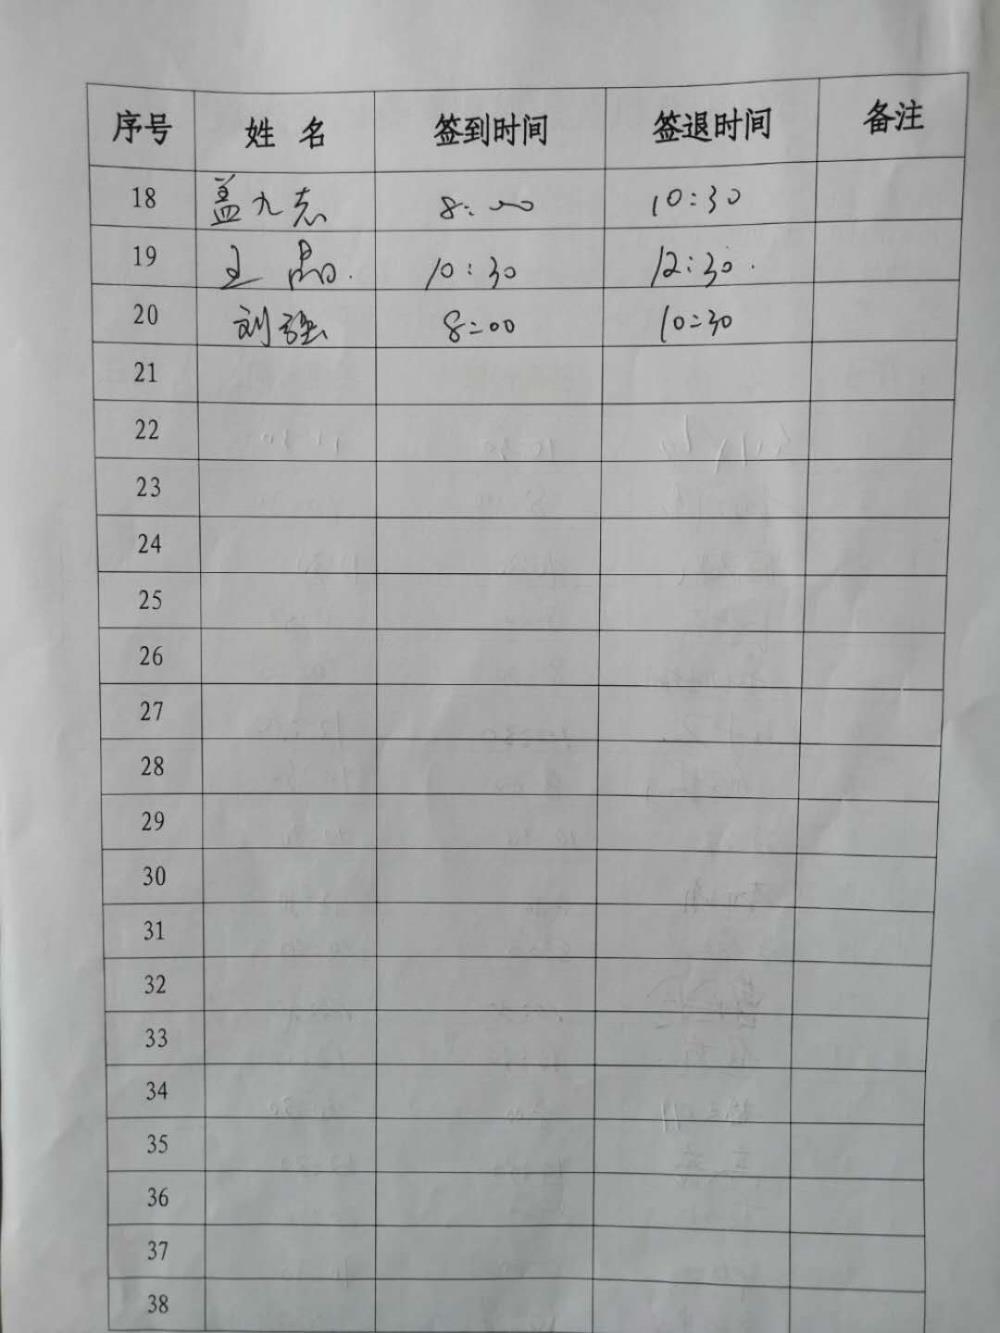 序号 姓名 签到时间 签退时间 备注
18 盖九志 8:00 10:30
19 王晶. 10:30 12:30.
20 刘强 8:00 10:30
21
22
23
24
25
26
27
28
29
30
31
32
33
34
35
36
37
38